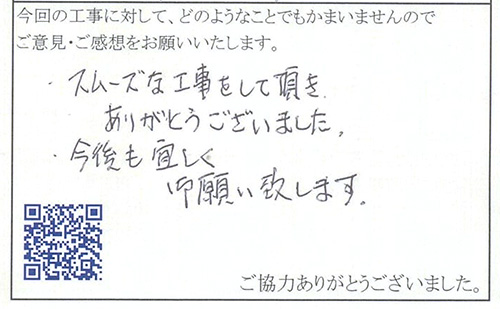 今回の工事に対して、どのようなことでもかまいませんので
ご意見・ご感想をお願いいたします。
・スムーズな工事をして頂き
ありがとうございました。
・今後も宜しく
御願い致します。
ご協力ありがとうございました。